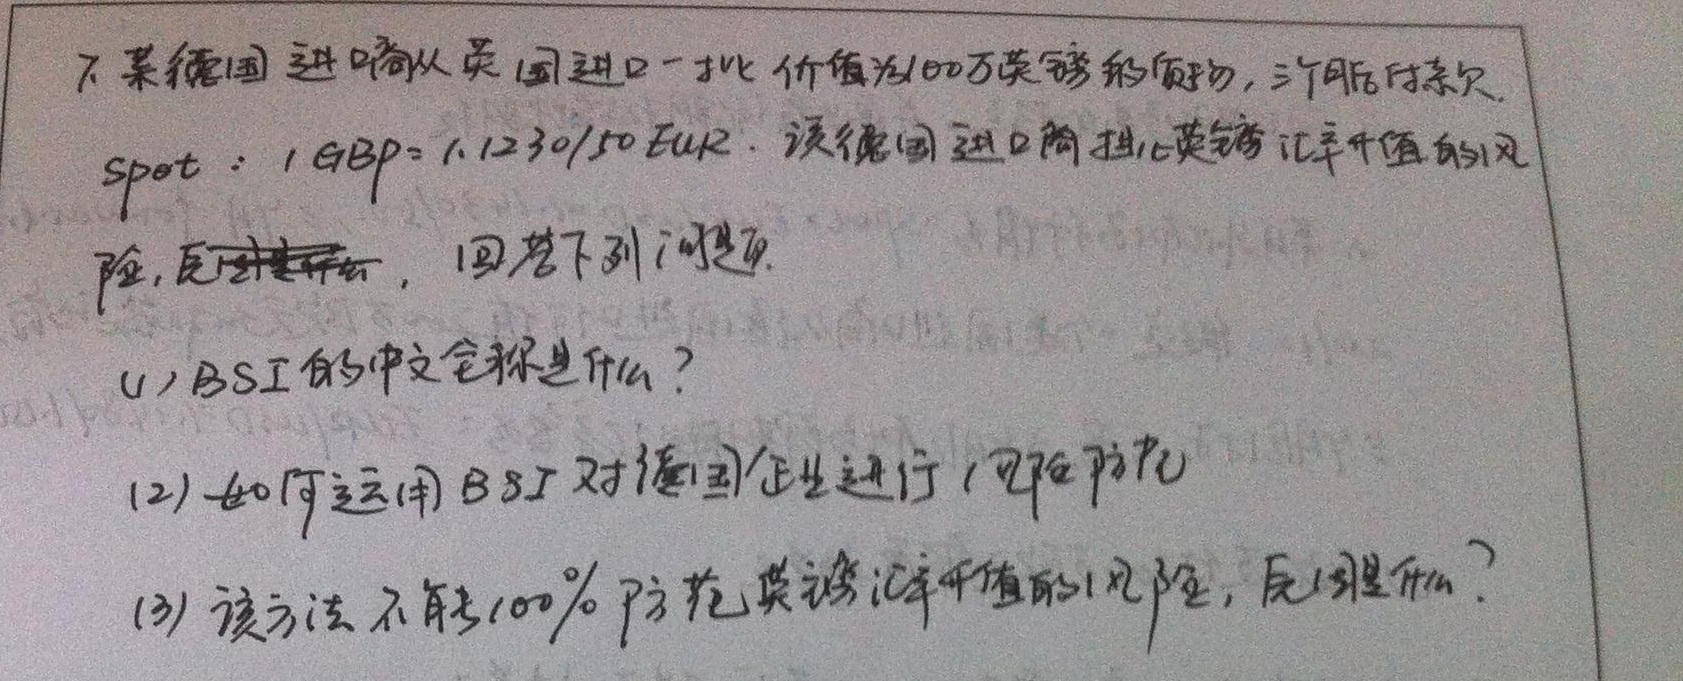 7. 某德国进口商从英国进口一批价值为100万英镑的货物,三个月后付款.
spot : 1 GBP = 1.1230/50 EUR. 该德国进口商担心英镑汇率升值的风
险, 回答下列问题.
(1) BSI的中文全称是什么?
(2) 如何运用BSI对德国企业进行风险防范
(3) 该方法不能100%防范英镑汇率升值的风险, 原因是什么?